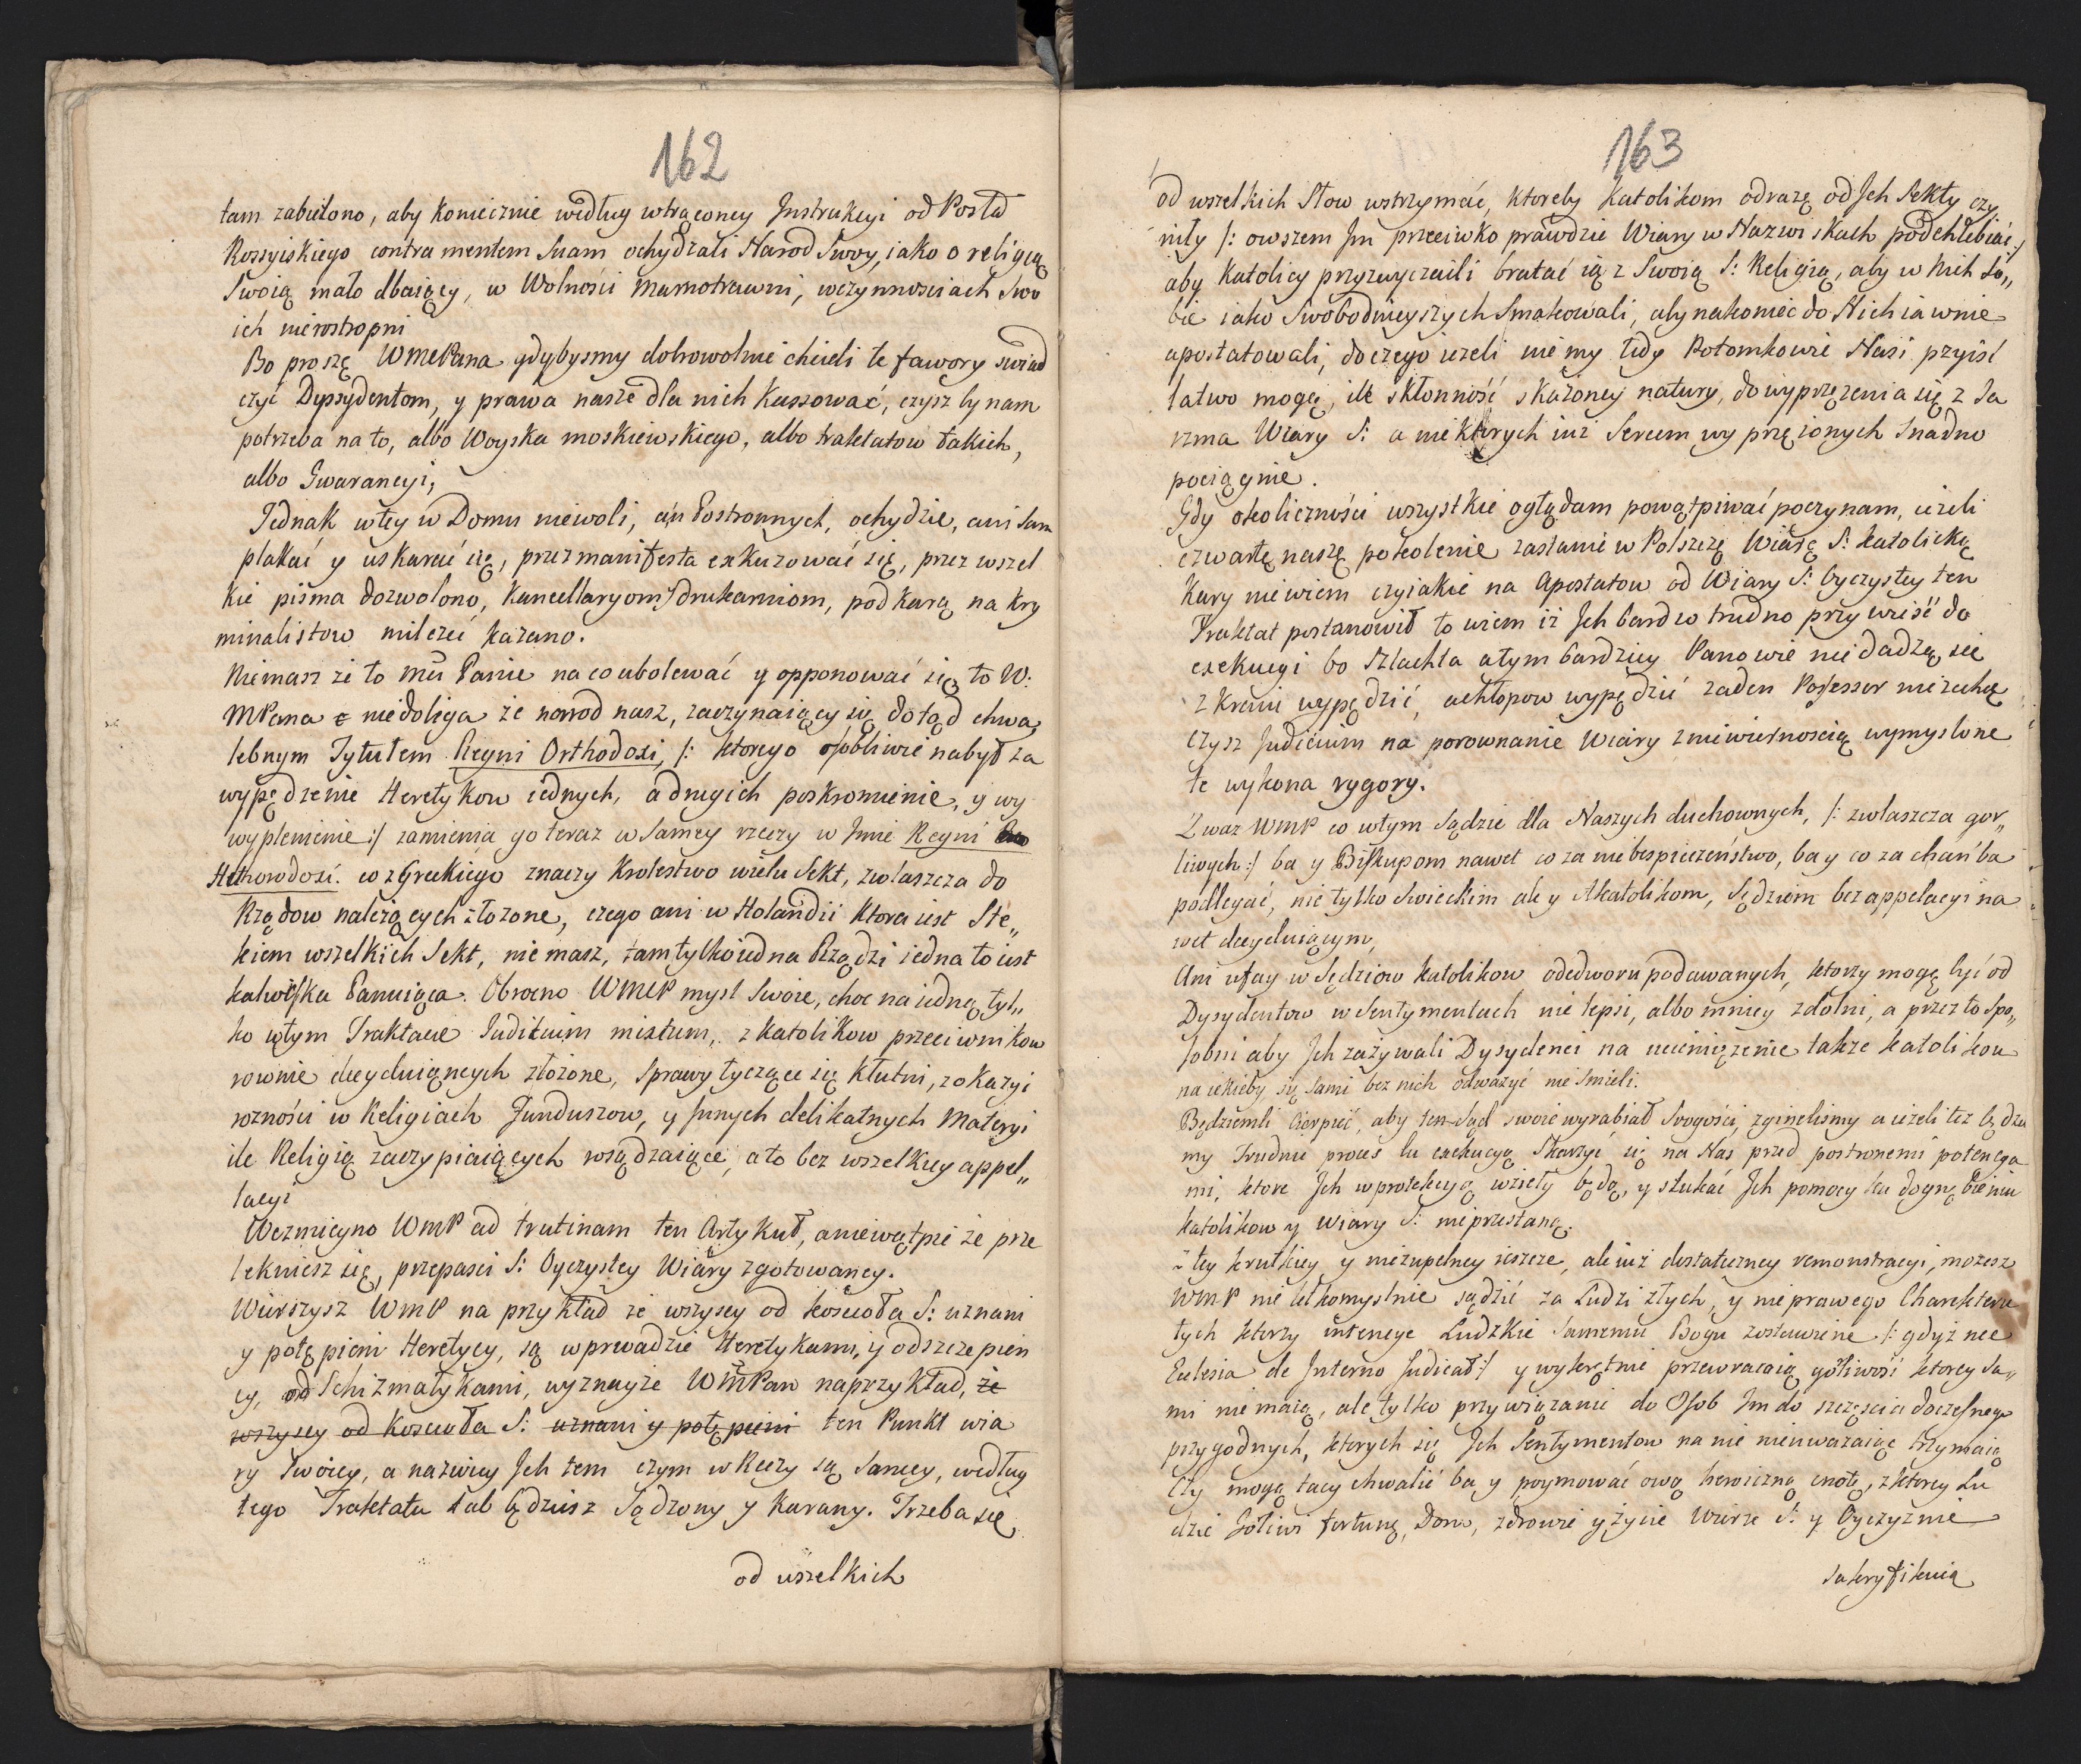 162
tam zabiłono, aby koniecznie według wtrąconey Jnstrukcyi od Posła
Rossyiskiego contra mentem Suam ochydzali Narod Swoy, iako o religią
Swoią mało dbaiący, w Wolności marnotrawni, wczynnosciach Swo
ich nierostropni
Bo proszę WMcPana gdybysmy dobrowolnie chcieli te fawory swiad
czyć Dyssydentom, y prawa nasze dla nich kassować, czysz by nam
potrzeba na to, albo Woyska moskiewskiego, albo traktatow takich,
albo Gwarancyi,
Jednak wtey w Domu niewoli, a u Postronnych, ochydzie, ani sam
płakać y uskarżać się, przez manifesta exkuzować się, przez wszel
kie pisma dozwolono, kancellaryom y drukarniom, pod karą na kry
minalistow milczeć kazano.
Niemasz ze to Mći Panie na co ubolewać y opponować się, to W:
MPana nie dolega że narod nasz, zaczynaiący się dotąd chwa
lebnym Tytułem Regni Orthodoxi, /: ktorego osobliwie nabył za
wypędzenie Heretykow iednych, a drugich poskromienie, y wy
wyplenienie :/ zamienia go teraz w samey rzeczy w Jmie Regni
Hetherodoxi. co z Greckiego znaczy Krolestwo wielu Sekt, zwłaszcza do
Rządow należących złożone, czego ani w Holandii ktora iest Ste„
kiem wszelkich Sekt, nie masz, tam tylko iedna Rządzi iedna to iest
kalwińska Panuiąca. Obrocno WMcP mysl swoie, choc na iedną tyl„
ko wtym Traktacie Judicium mixtum, z katolikow przeciwnikow
rownie decyduiących złożone, sprawy tyczące się kłutni, zokazyi
rozności w Religiach Funduszow, y Jnnych delikatnych Materyi
ile Religią zaczypiaiących rosądzaiące, a to bez wszelkiey appel„
lacyi
Wezmicyno WMP ad trutinam ten Artykuł, a niewątpię że prze
lekniesz się, przepasci S: Oyczystey Wiary zgotowaney.
Wierzysz WMP na przykład że wszyscy od kościoła S: uznani
y potępieni Heretycy, są wprawdzie Heretykami, y odszczepien
cy, Schizmatykami, wyznayże WMPan naprzykład, że
wszyscy od Koscioła S: uznani y potępieni ten Punkt wia
ry swoiey, a nazwiey Jch tem czym w Rzeczy są samey, według
tego Traktatu Lub będziesz Sądzony y karany. Trzeba się
od wszelkich
163
od wszelkich Słow wstrzymać, ktoreby Katolikom odrazę od Jch Sekty czy
niły /: owszem Jm przeciwko prawdzie Wiary w Nazwiskach podchlebiać :/
aby Katolicy przyzwyczaili bratać się z Swoią S: Religią, aby w Nich So„
bie iako swobodnieyszych smakowali, aby nakoniec do Nich iawnie
apostatowali, do czego ieżeli nie my tedy Potomkowie Nasi przyiść
łatwo mogą, ile skłonność skażoney natury, do wyprzężenia się z Ja
rzma Wiary S: a niektorych iuż Sercem wyprzężonych snadno
pociągnie.
Gdy okoliczności wszystkie oglądam powątpiwać poczynam, ieżeli
czwarte nasze pokolenie zastanie w Polszczę Wiarę S: katolicką
Kary niewiem czyiakie na Apostatow od Wiary S: Oyczystey ten
Traktat postanowił to wiem iż Jch bardzo trudno przywieść do
exekucyi bo Szlachta a tym bardziey Panowie nie dadzą się
z Kraiu wypędzić, a chłopow wypędzić zaden Possessor niezechce
czysz Judicium na porownanie Wiary z niewiernoscią wymyslone
te wykona rygory.
Zwaz WMP co wtym Sądzie dla Naszych duchownych, /: zwłaszcza gor„
liwych :/ ba y Biskupom nawet co za niebespieczeństwo, ba y co za chańba
podlegać, nie tylko Swieckim ale y Akatolikom, Sędziom bez appelacyi na
wet decyduiącym,
Ani ufay w Sędziow katolikow odedworu podawanych, ktorzy mogą być od
Dysydentow w Sentymentach nie lepsi, albo mniey zdolni, a przez to spo„
sobni aby Jch zażywali Dysydenci na uciemiężenie takze katolikow
na iakieby się sami bez nich odważyć nie Smieli.
Będziemli cierpieć, aby ten Sąd swoie wyrabiał Srogości, zgineliśmy a ieżeli też będzie
my Trudnić proces lu exekucyą Skarzyć się na Nas przed postronnemi potencya
mi, ktore Jch w protekcyą wzięły będą, y szukać Jch pomocy ku dognębieniu
katolikow y Wiary S: nie przestaną.
z tey krutkiey y niezupełney ieszcze, ale iuż dostateczney remonstracyi, możesz
WMP nie lekkomyslnie sądzić za Ludzi złych, y nieprawego Charakteru
tych ktorzy intencye Ludzkie samemu Bogu zostawione /: gdyż nec
Eclesia de Jnterno Judicat :/ y wykrętnie przewracaią gorliwość ktorey sa„
mi nie maią, ale tylko przywiązanie do Osob Jm do szczęscia doczesnego
przygodnych, ktorych się Jch Sentymentow na nie nieuważaiąc trzymaią
Czy mogą tacy chwalić ba y poymować ową heroiczną cnotę, z ktorey Lu
dzie gorliwi fortunę, Dom, zdrowie y życie Wierze S: y Oyczyznie
sakryfikuią